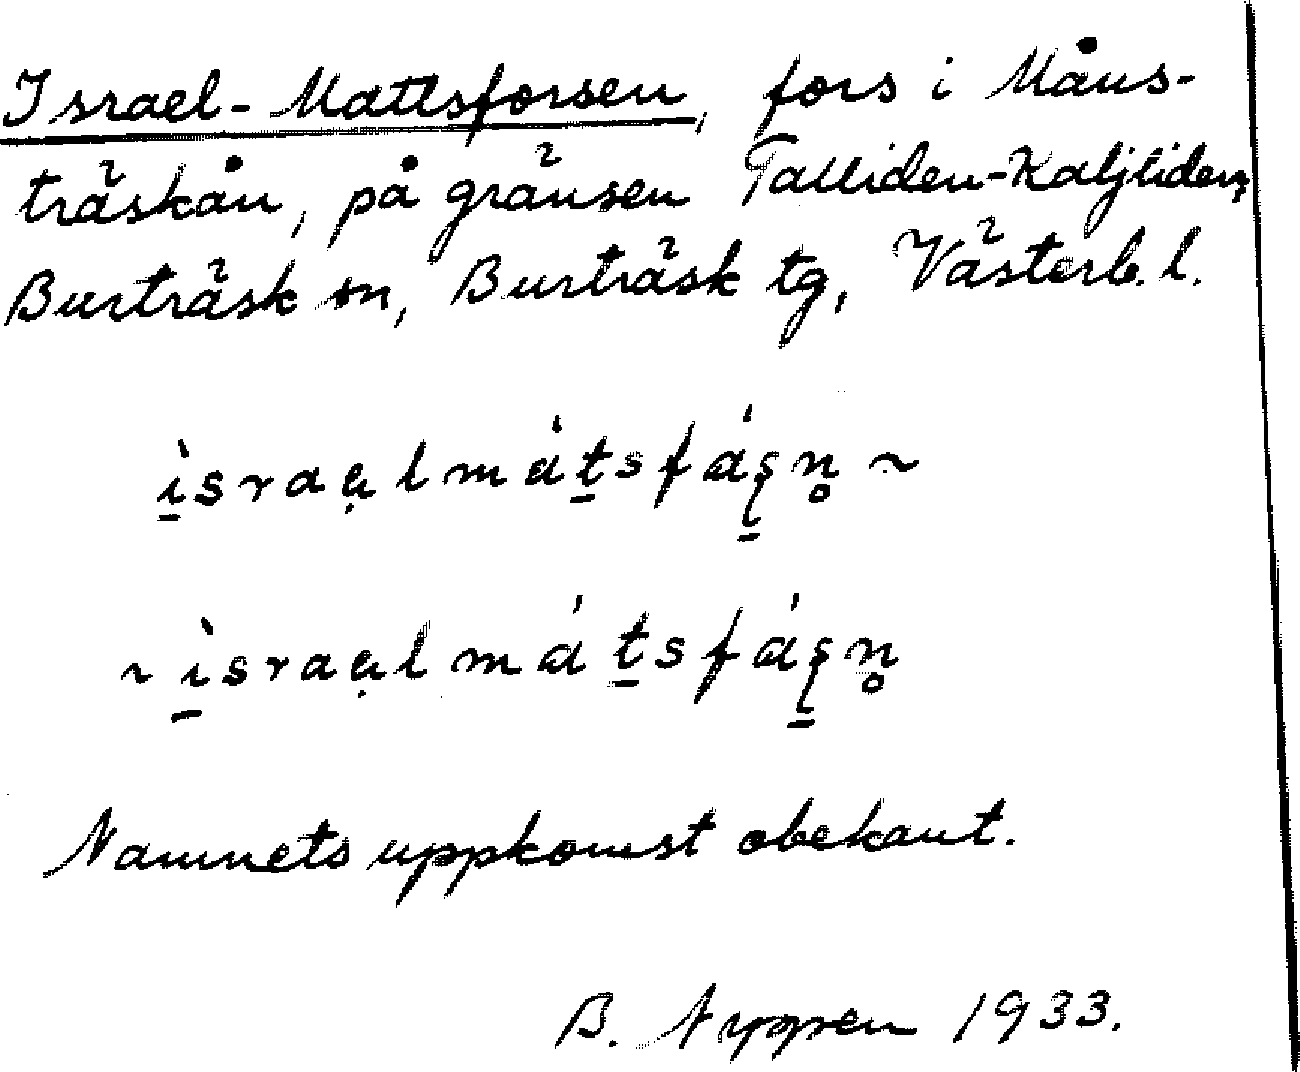 Israel-Mattsforsen, fors i Måns-
träskån, på gränsen Talliden-Kaljliden,
Burträsk sn, Burträsk tg, Västerb. l.
ìsraạlmát̠sfáş̠n̥ ~
~ ìsraạlmát̠sfáş̠n̥
Namnets uppkomst obekant.
B. 1933.